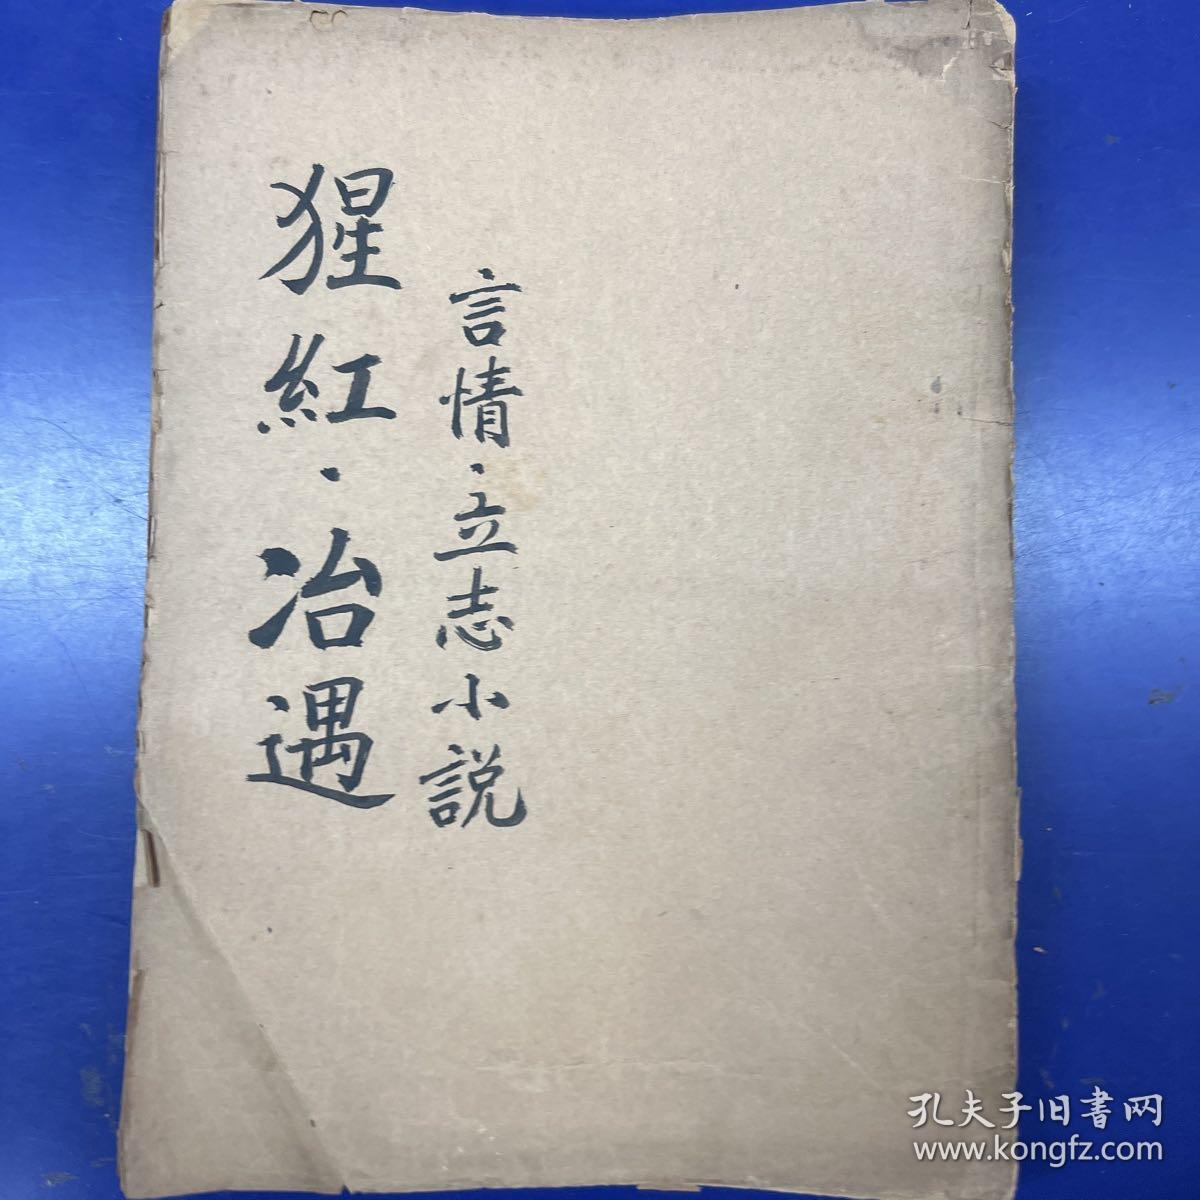 言情·立志小説
猩紅·冶遇
孔夫子旧書网
www.kongfz.com